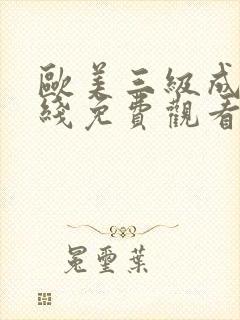 歐美三級成
綫免費觀看
冕璽葉